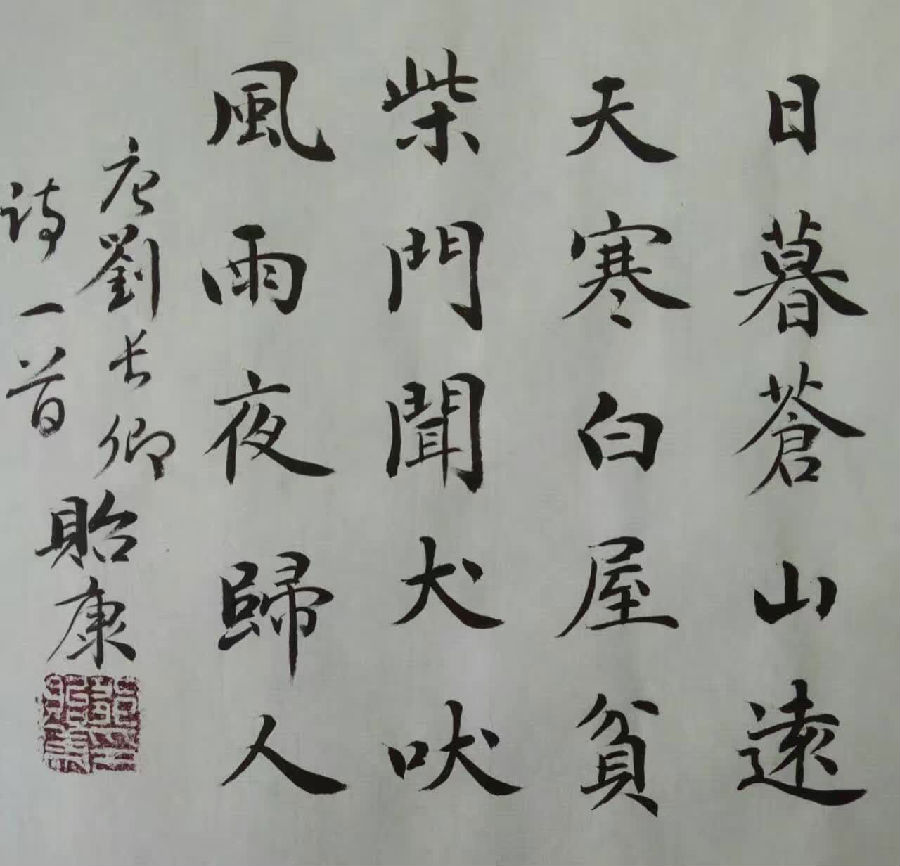 日暮蒼山遠
天寒白屋貧
柴門聞犬吠
風雨夜歸人
唐劉长卿
詩一首
貽康